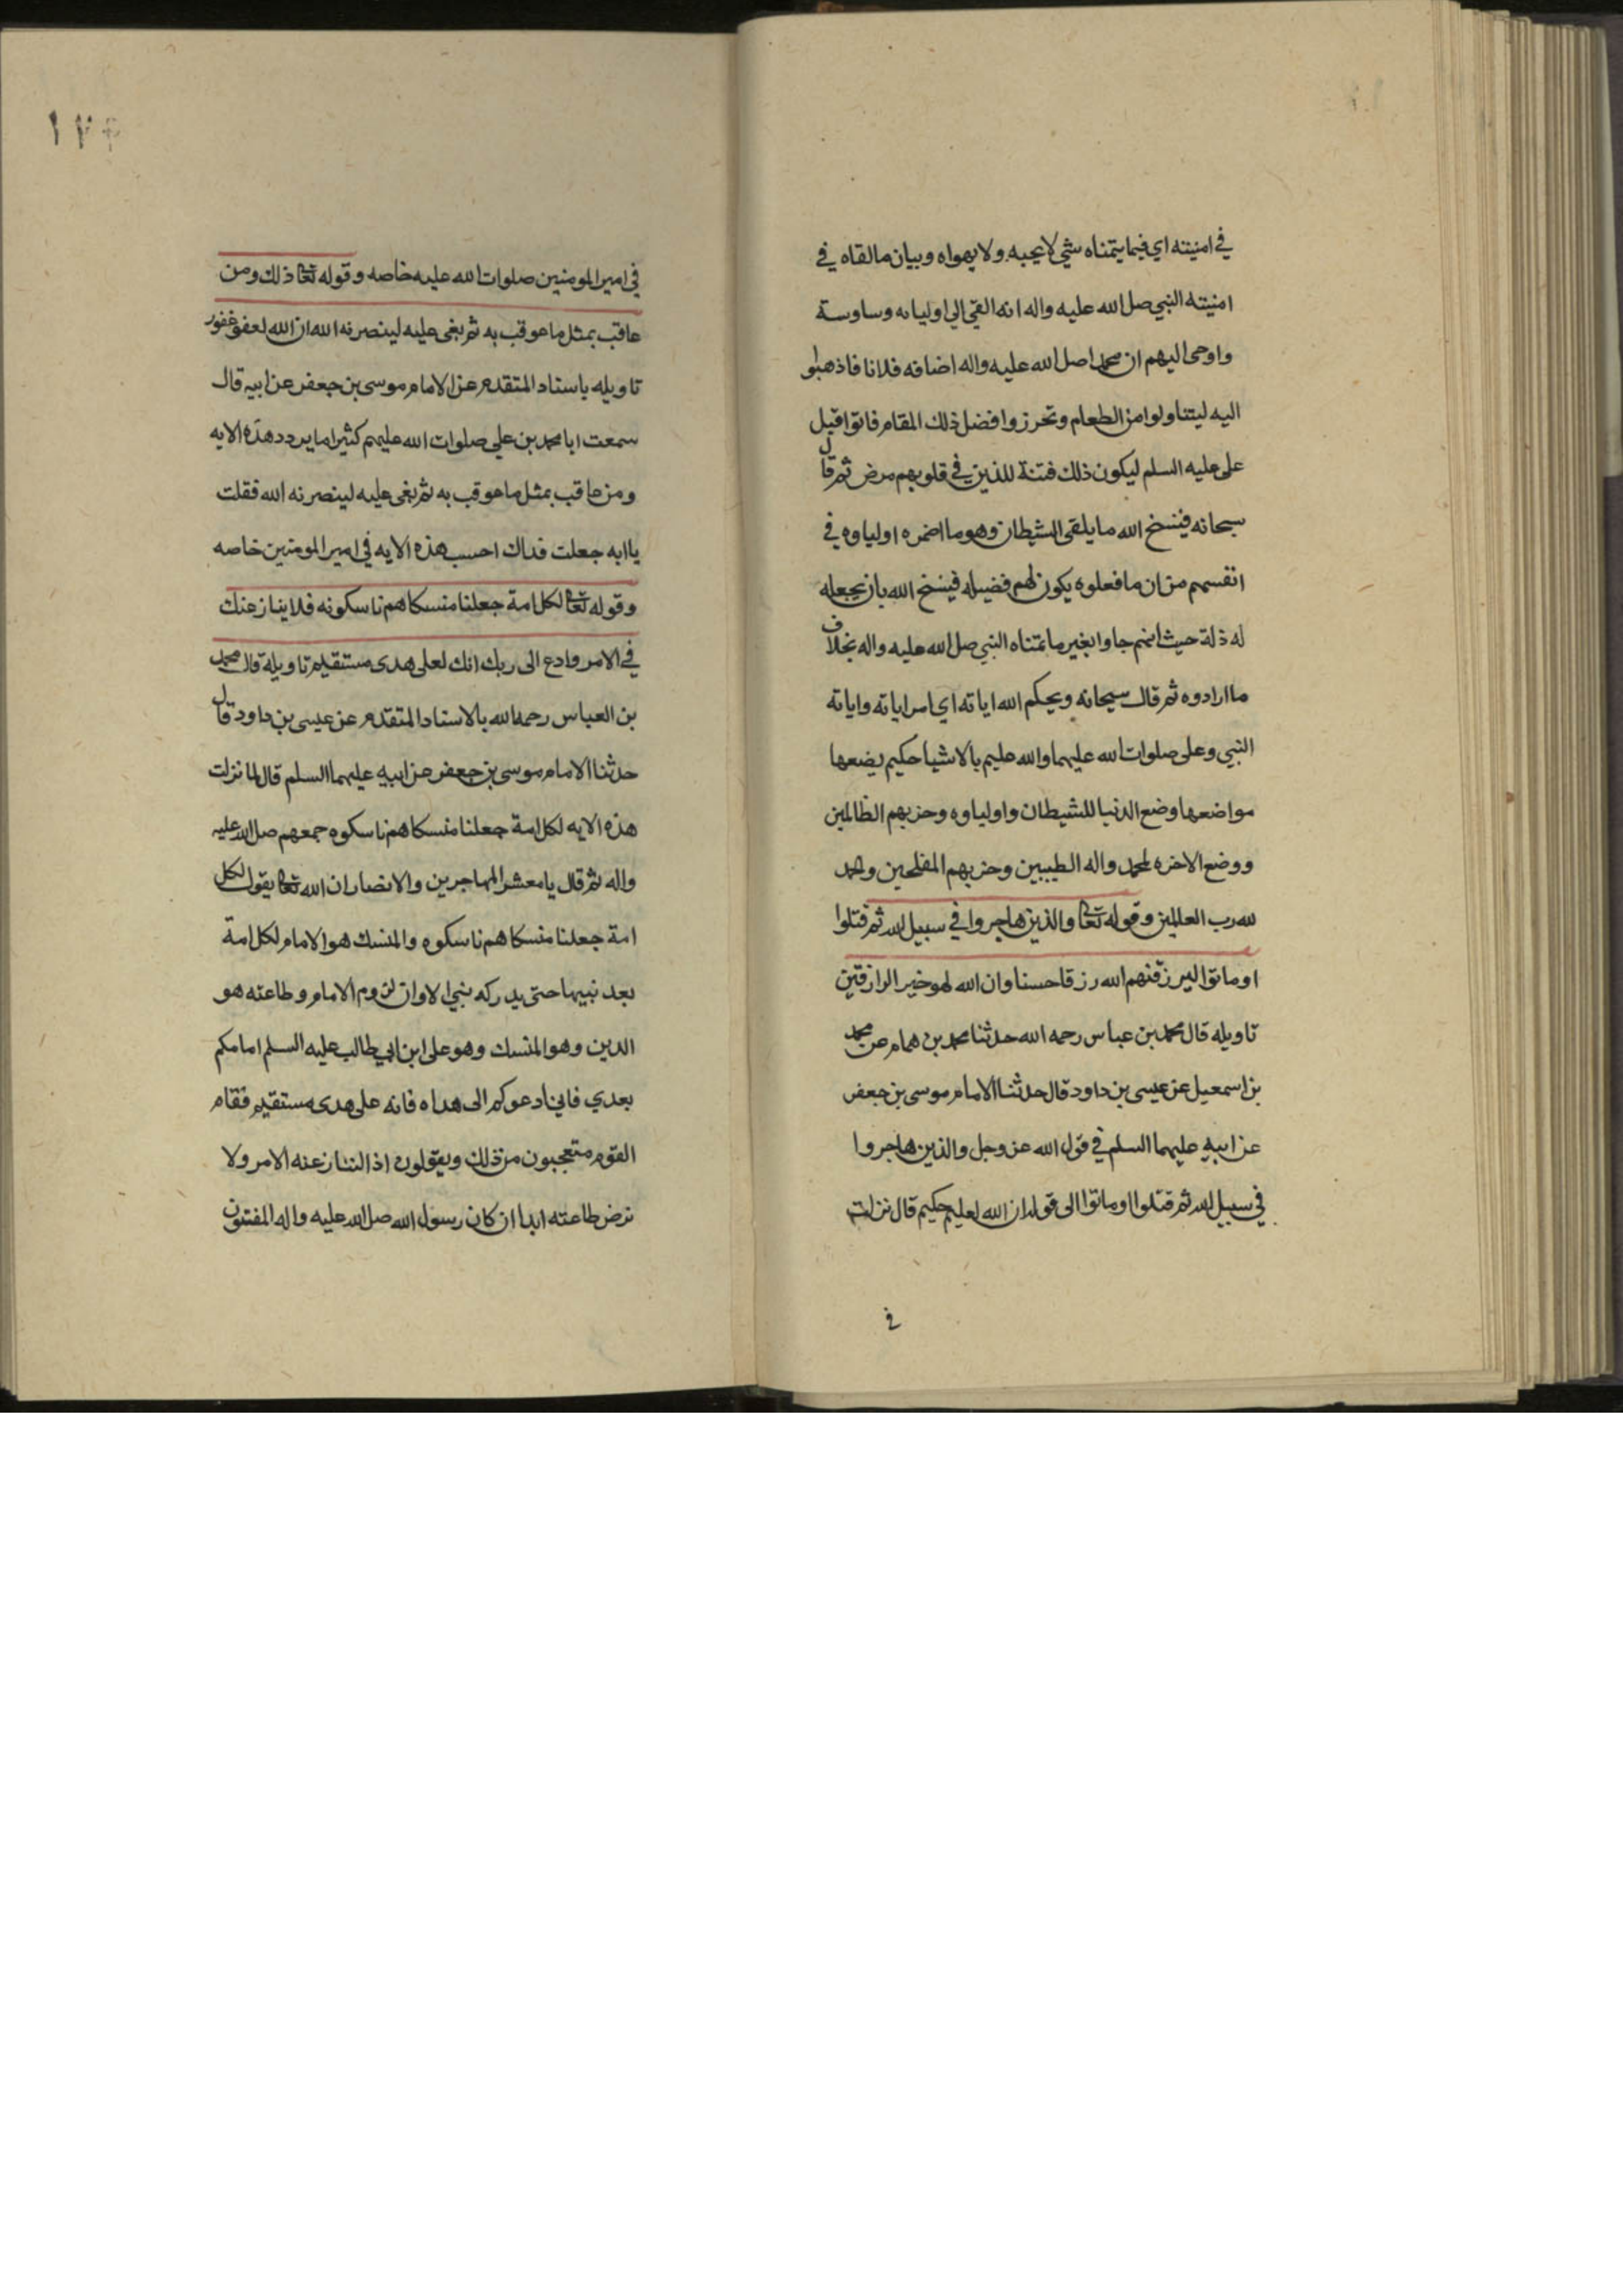 في امنيته اي فيما يتمناه شي لا يحبه ولا يهواه وبيان ما القاه في
امنيته النبي صل الله عليه واله انه القي الي اوليايه وساوسة
واوحى اليهم ان محمدا صل الله عليه واله اضافه فلانا فاذهبوا
اليه ليتناولوا من الطعام وتحرزوا فضل ذلك المقام فاتوا قبل
على عليه السلم ليكون ذلك فتنة للذين في قلوبهم مرض ثم قال
سبحانه فينسخ الله ما يلقى الشيطان وهو ما اضمره اولياوه في
انفسهم من ان ما فعلوه يكون لهم فضيله فينسخ الله بان يجعله
له ذلة حيث انهم جاوا بغير ما تمتناه النبي صل الله عليه واله بخلاف
ما ارادوه ثم قال سبحانه ويحكم الله اياته اي امر اياته واياته
النبي وعلى صلوات الله عليهما والله عليم بالاشيا حكيم يضعها
مواضعها وضع الدنيا للشيطان واولياوه وحزبهم الظالمين
ووضع الاخره لمحمد واله الطيبين وحزبهم المفلحين والحمد
لله رب العالمين وقوله تعالى والذين هاجروا في سبيل الله ثم قتلوا
او ماتوا ليرزقنهم الله رزقا حسنا وان الله لهو خير الرازقين
تاويله قال محمد بن عباس رحمه الله حدثنا محمد بن همام عن محمد
بن اسمعيل عن عيسى بن داود قال حدثنا الامام موسى بن جعفر
عن ابيه عليهما السلم في قول الله عز وجل والذين هاجروا
في سبيل الله ثم قتلوا او ماتوا الى قوله ان الله لعليم حكيم قال نزلت
في
١٧٤
في امير المومنين صلوات الله عليه خاصه وقوله تعالى ذلك ومن
عاقب بمثل ما عوقب به ثم بغى عليه لينصرنه الله ان الله لعفو غفور
تاويله باسناد المتقدم عن الامام موسى بن جعفر عن ابيه قال
سمعت ابا محمد بن علي صلوات الله عليهم كثيرا ما يردد هذه الايه
ومن عاقب بمثل ما عوقب به ثم بغى عليه لينصرنه الله فقلت
يا ابه جعلت فداك احسب هذه الايه في امير المومنين خاصه
وقوله تعالى لكل امة جعلنا منسكا هم ناسكونه فلا ينازعنك
في الامر وادع الى ربك انك لعلى هدى مستقيم تاويله قال محمد
بن العباس رحمه الله بالاسناد المتقدم عن عيسى بن داود قال
حدثنا الامام موسى بن جعفر عن ابيه عليهما السلم قال لما نزلت
هذه الايه لكل امة جعلنا منسكا هم ناسكوه جمعهم صل الله عليه
واله ثم قال يا معشر المهاجرين والانصار ان الله تعالى يقول لكل
امة جعلنا منسكا هم ناسكوه والمنسك هو الامام لكل امة
بعد نبيها حتى يدركه نبي الا وان لزوم الامام وطاعته هو
الدين وهو المنسك وهو على ابن ابي طالب عليه السلم امامكم
بعدي فاني ادعوكم الى هداه فانه على هدى مستقيم فقام
القوم متعجبون من ذلك ويقولون اذا لننازعنه الامر ولا
نرض طاعته ابدا ان كان رسول الله صل الله عليه واله المفتون